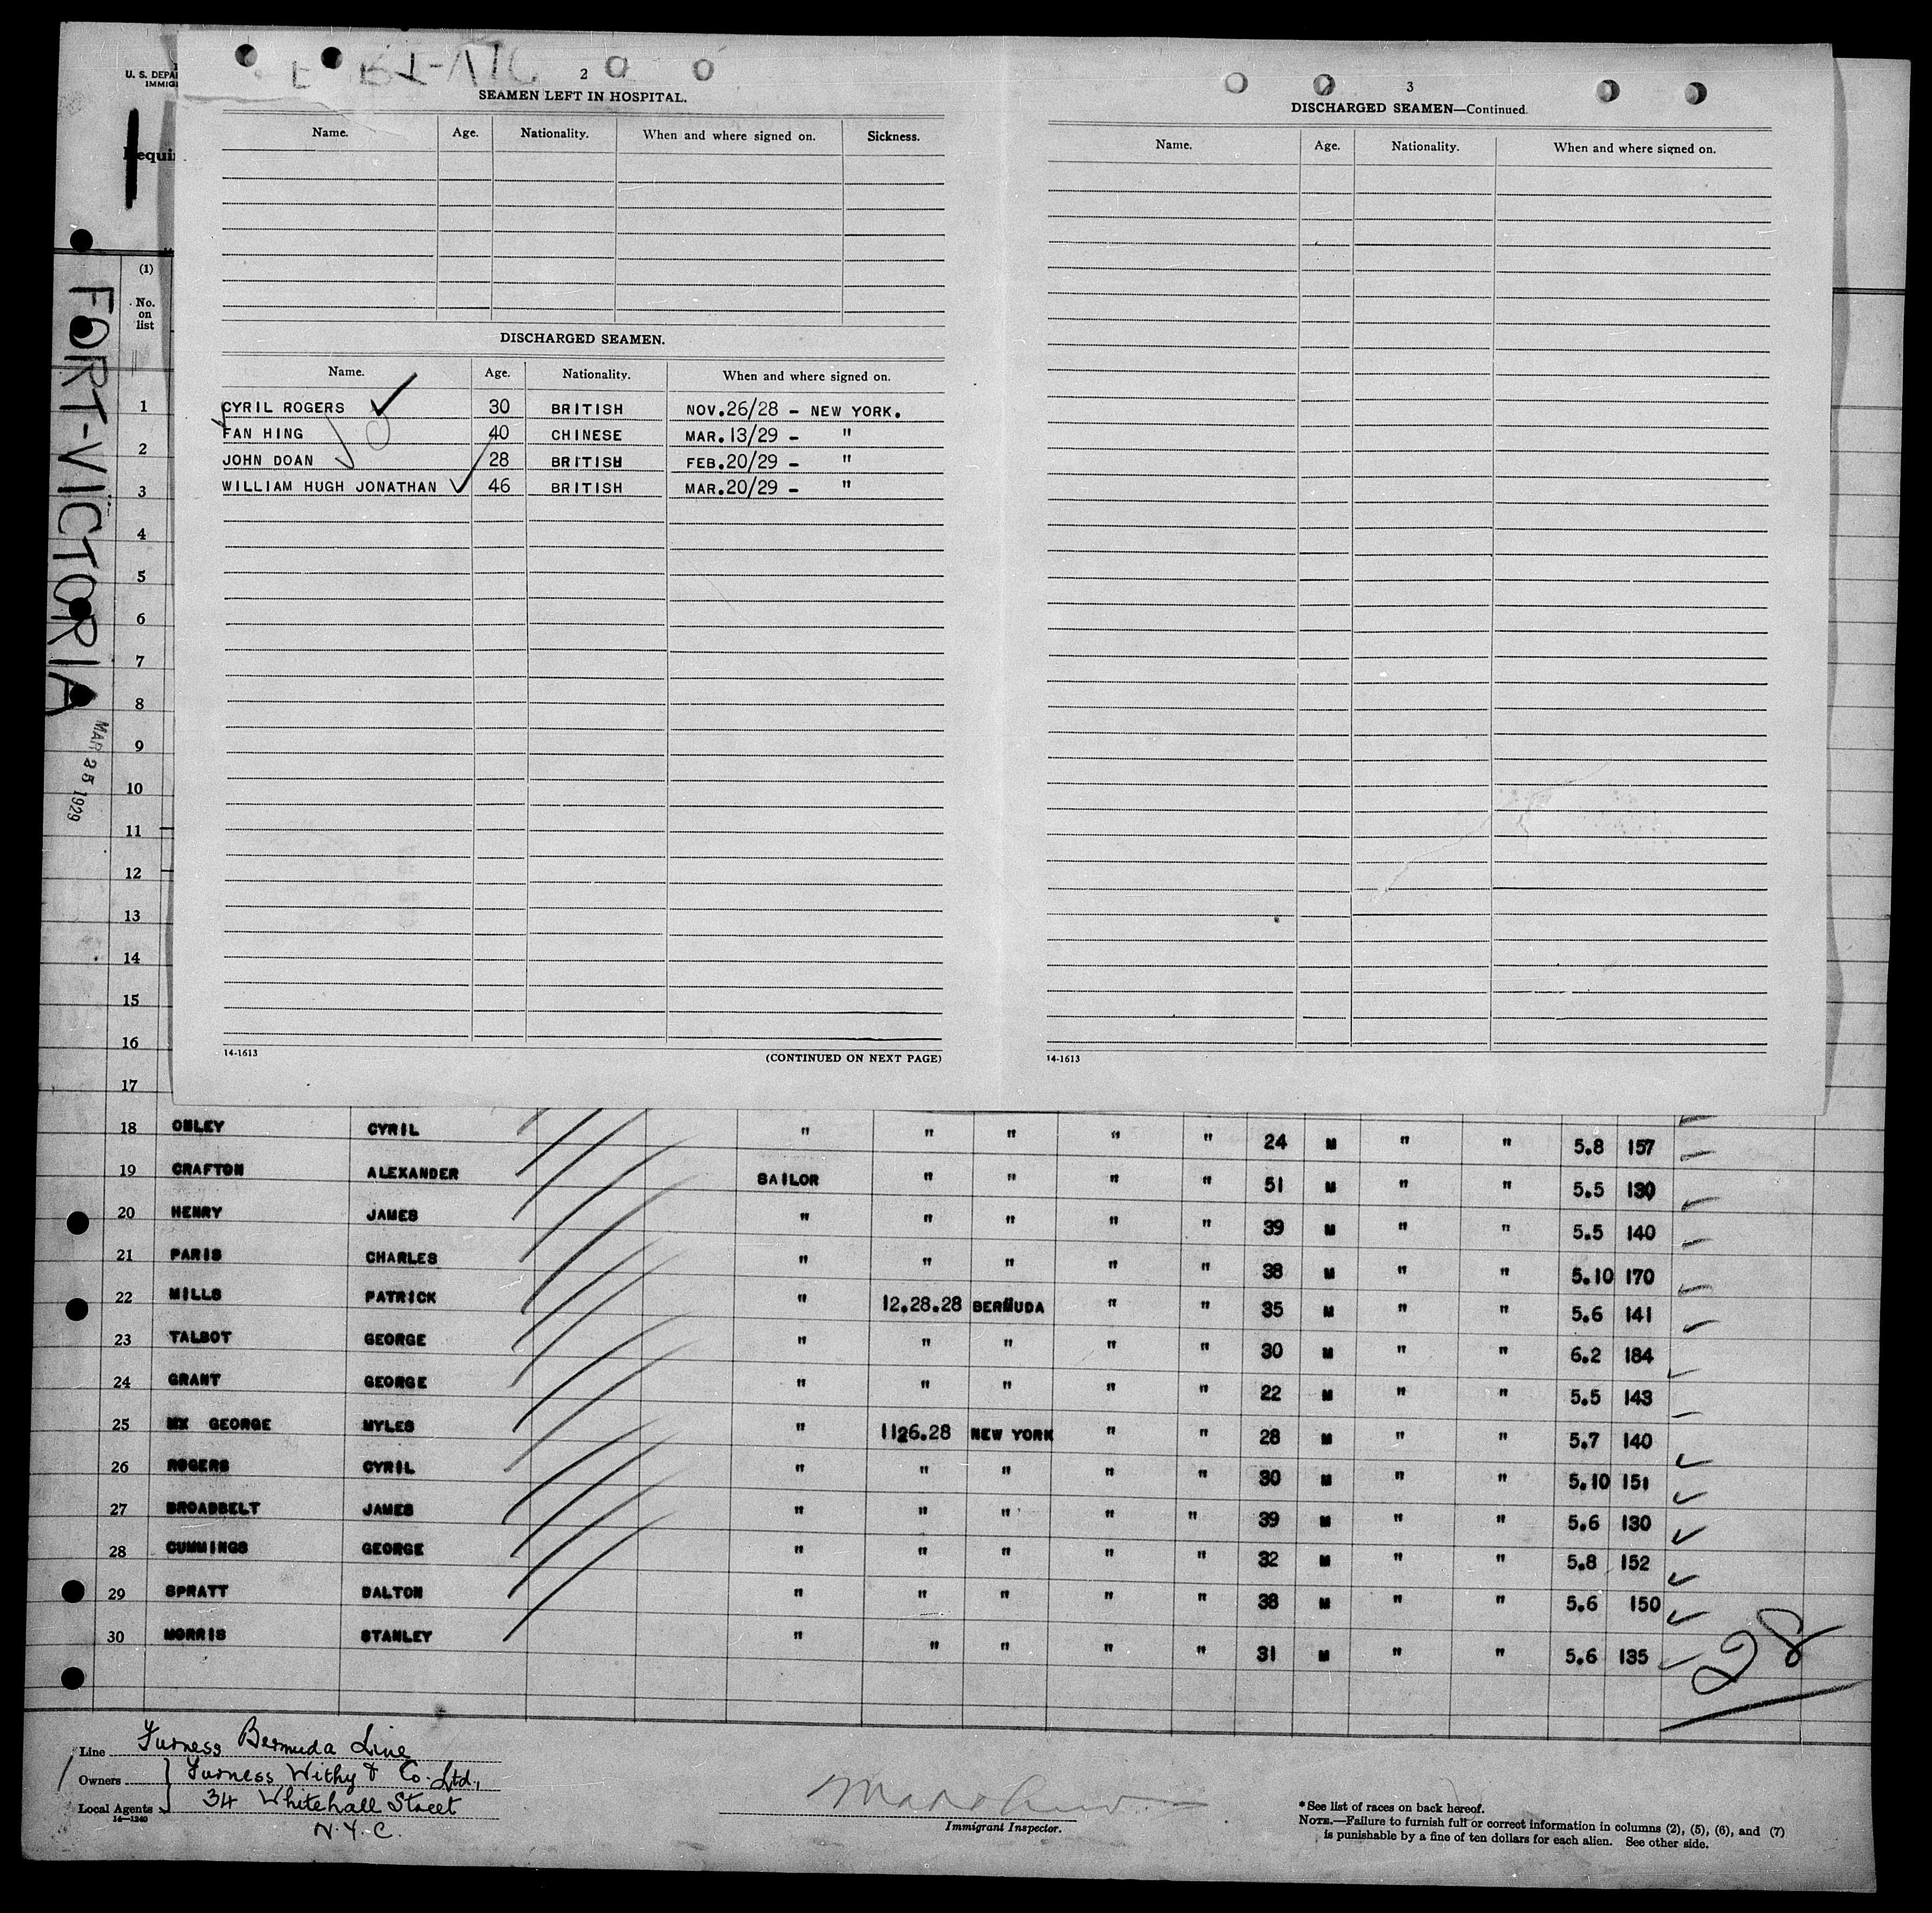 U. S. DEPA
IMMIG
equi
FORT-VICTORIA
MAR 25 1929
(1)
No.
on
list
2
SEAMEN LEFT IN HOSPITAL.
Name. Age. Nationality. When and where signed on. Sickness.
DISCHARGED SEAMEN.
Name. Age. Nationality. When and where signed on.
CYRIL ROGERS 30 BRITISH NOV.26/28 - NEW YORK.
FAN HING 40 CHINESE MAR.13/29 - "
JOHN DOAN 28 BRITISH FEB.20/29 - "
WILLIAM HUGH JONATHAN 46 BRITISH MAR.20/29 - "
14-1613 (CONTINUED ON NEXT PAGE)
3
DISCHARGED SEAMEN—Continued.
Name. Age. Nationality. When and where signed on.
14-1613
1
2
3
4
5
6
7
8
9
10
11
12
13
14
15
16
17
18 ONLEY CYRIL " " " " " 24 M " " 5.8 157
19 CRAFTON ALEXANDER SAILOR " " " " 51 M " " 5.5 130
20 HENRY JAMES " " " " " 39 M " " 5.5 140
21 PARIS CHARLES " " " " " 38 M " " 5.10 170
22 MILLS PATRICK " 12.28.28 BERMUDA " " 35 M " " 5.6 141
23 TALBOT GEORGE " " " " " 30 M " " 6.2 184
24 GRANT GEORGE " " " " " 22 M " " 5.5 143
25 MX GEORGE MYLES " 1126.28 NEW YORK " " 28 M " " 5.7 140
26 ROGERS CYRIL " " " " " 30 M " " 5.10 151
27 BROADBELT JAMES " " " " " 39 M " " 5.6 130
28 CUMMINGS GEORGE " " " " " 32 M " " 5.8 152
29 SPRATT DALTON " " " " " 38 M " " 5.6 150
30 MORRIS STANLEY " " " " " 31 M " " 5.6 135
28
Line Furness Bermuda Line
Owners Furness Withy & Co. Ltd.,
Local Agents 34 Whitehall Street
14—1240
N.Y.C.
Immigrant Inspector.
* See list of races on back hereof.
NOTE.—Failure to furnish full or correct information in columns (2), (5), (6), and (7)
is punishable by a fine of ten dollars for each alien. See other side.